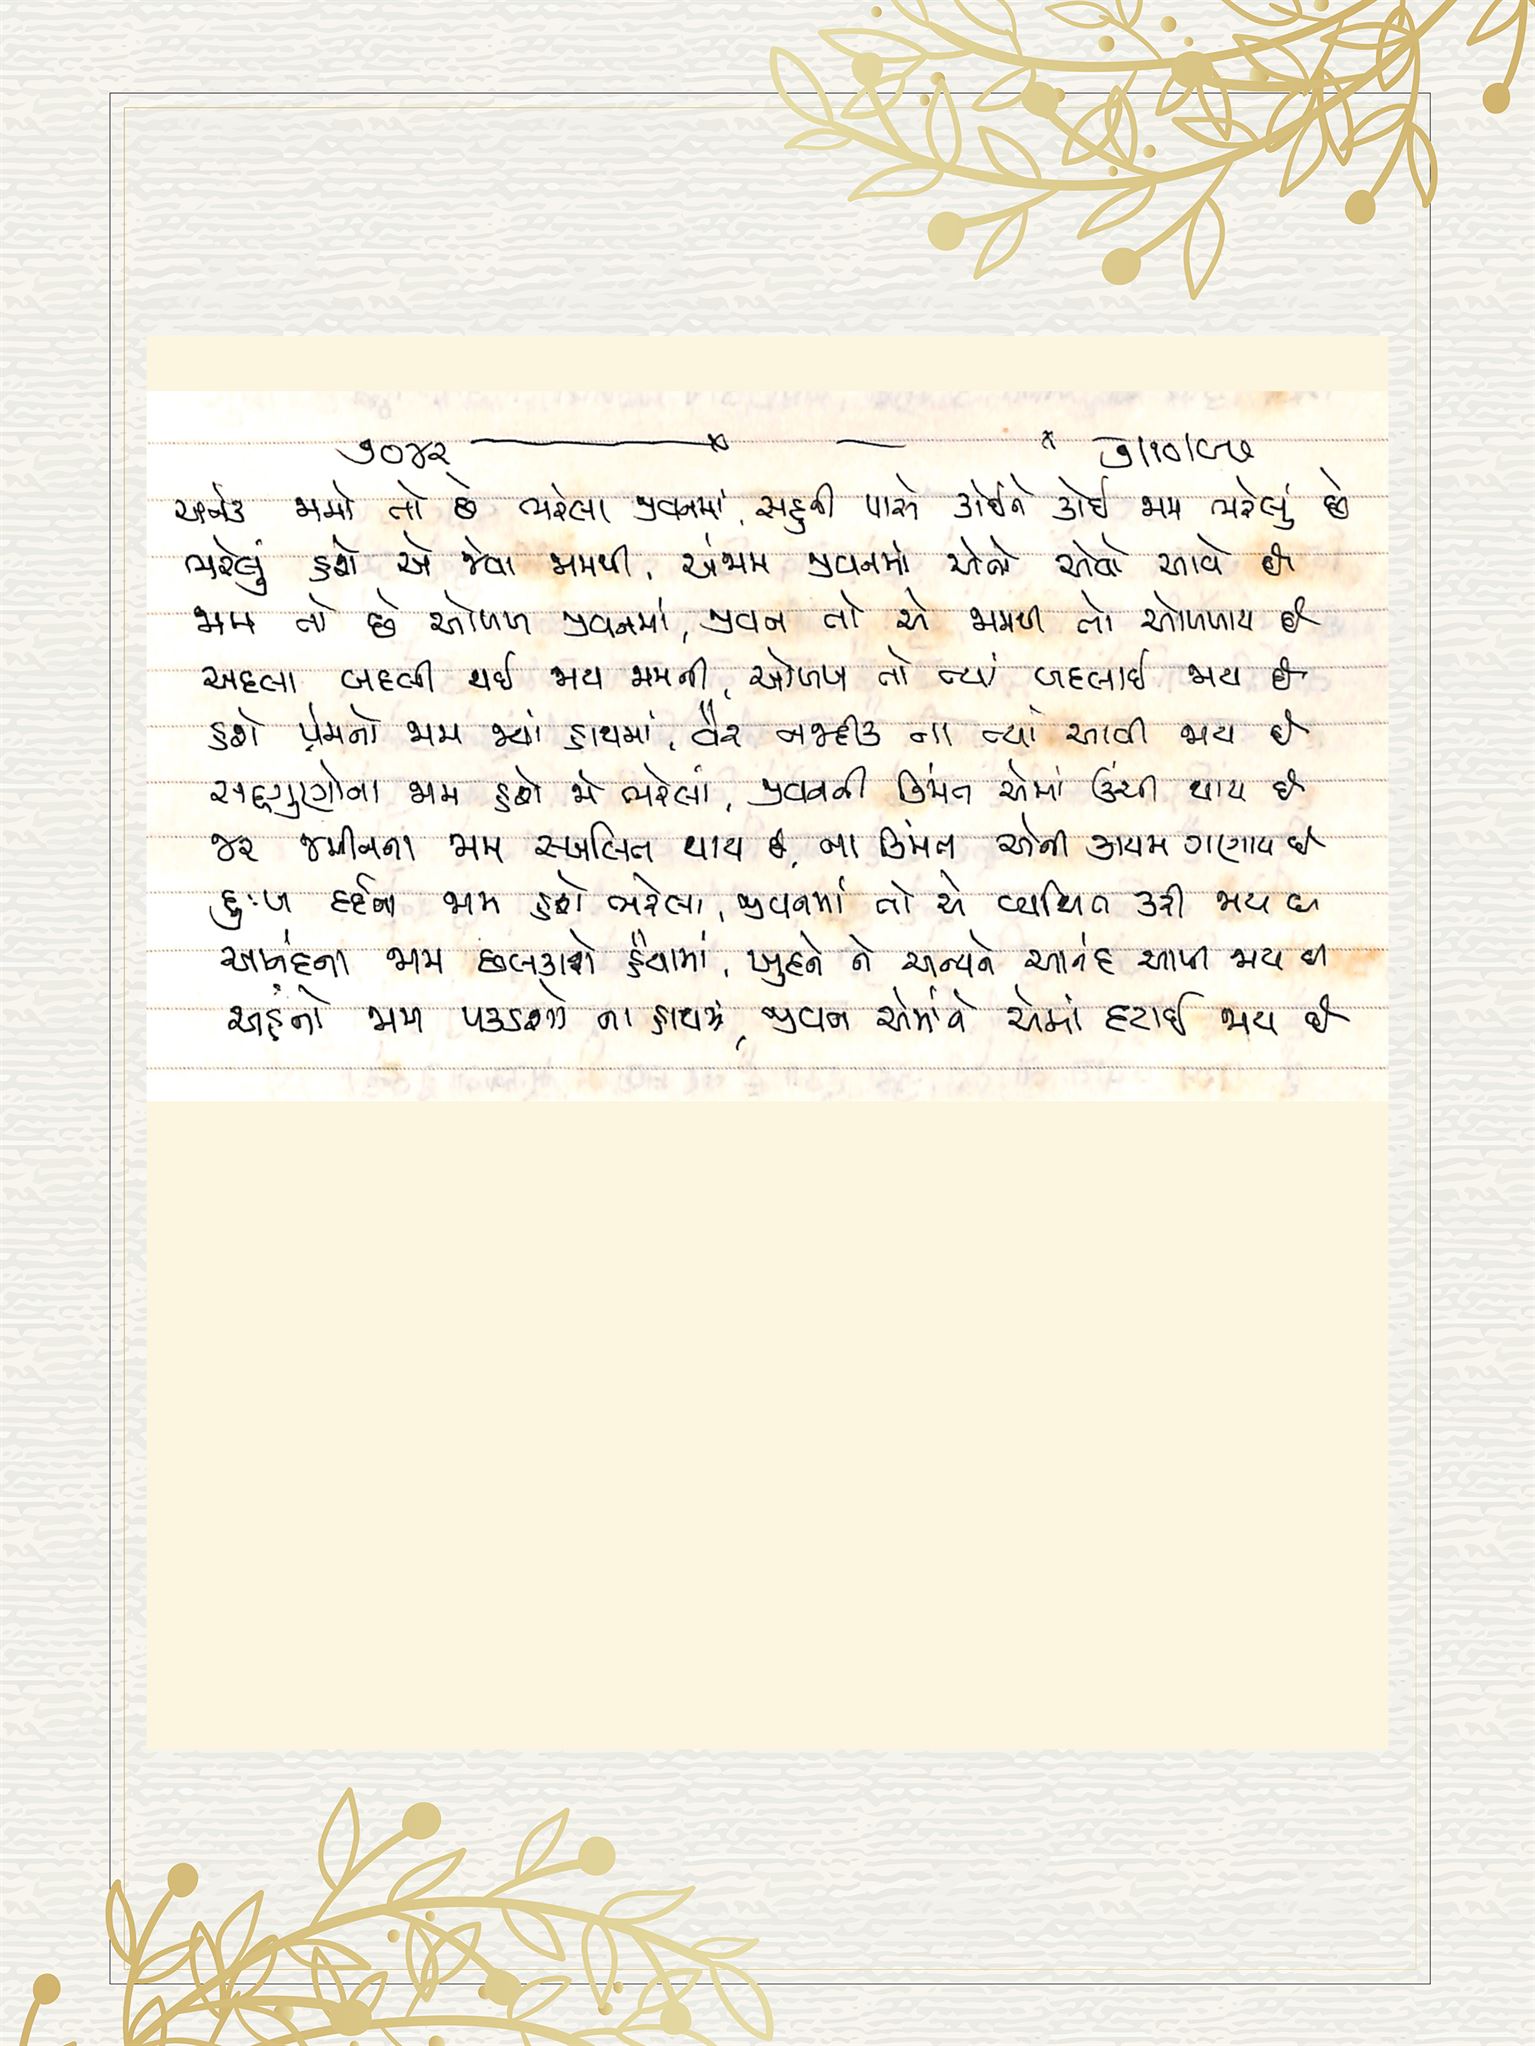 ૭૦૪૨ ૭/૧૦/૯૭
અનેક જામો તો છે ભરેલા જીવનમાં, સહુની પાસે કોઈને કોઈ જામ ભરેલું છે
ભરેલું હશે એ જેવા જામથી, અંજામ જીવનમાં એનો એવો આવે છે
જામ તો છે ઓળખ જીવનમાં, જીવન તો એ જામથી તો ઓળખાય છે
અદલા બદલી થઈ જાય જામની, ઓળખ તો ત્યાં બદલાઈ જાય છે
હશે પ્રેમનો જામ જ્યાં હાથમાં, વૈર નજદીક ના ત્યાં આવી જાય છે
સદ્ગુણોના જામ હશે જો ભરેલાં, જીવનની કિંમત એમાં ઉંચી થાય છે
જર જમીનના જામ સ્ખલિત થાય છે, ના કિંમત એની કાયમ ગણાય છે
દુઃખ દર્દના જામ હશે ભરેલા, જીવનમાં તો એ વ્યથિત કરી જાય છે
આનંદના જામ છલકાશે હૈયામાં, ખુદને ને અન્યને આનંદ આપી જાય છે
અહંનો જામ પકડશો ના હાથમાં, જીવન એમાંને એમાં દટાઈ જાય છે